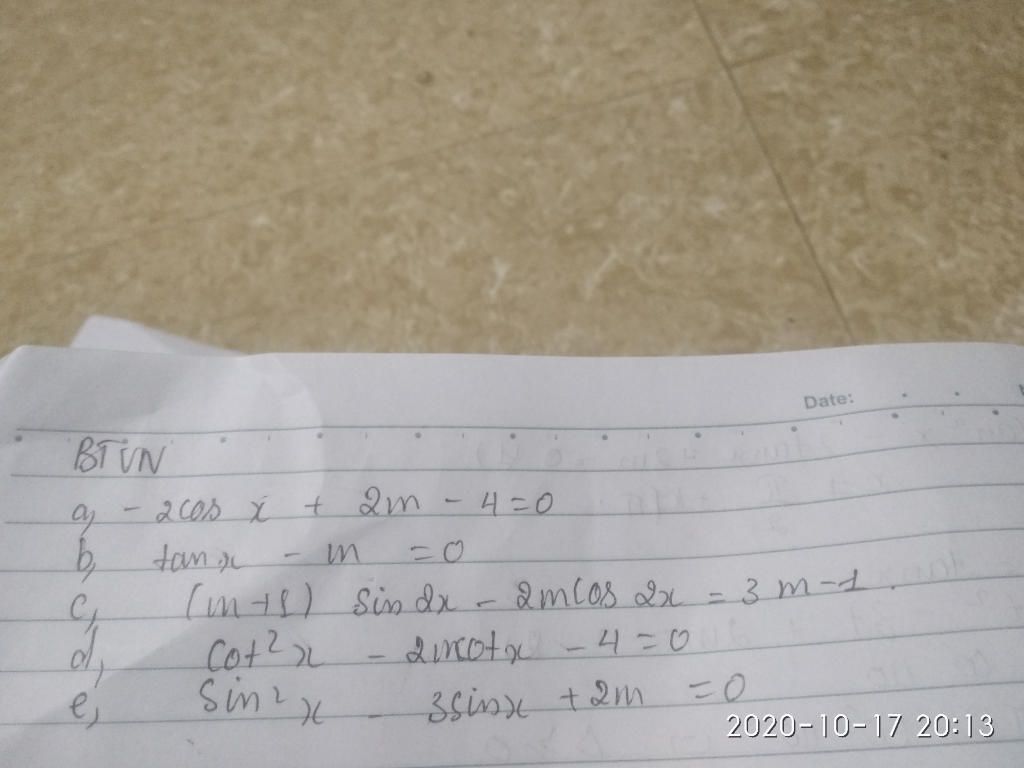 Date:
BTVN
a, - 2cos x + 2m - 4 = 0
b, tan x - m = 0
c, (m+1) sin 2x - 2m cos 2x = 3m - 1.
d, cot² x - 2m cot x - 4 = 0
e, sin² x - 3 sin x + 2m = 0
2020-10-17 20:13